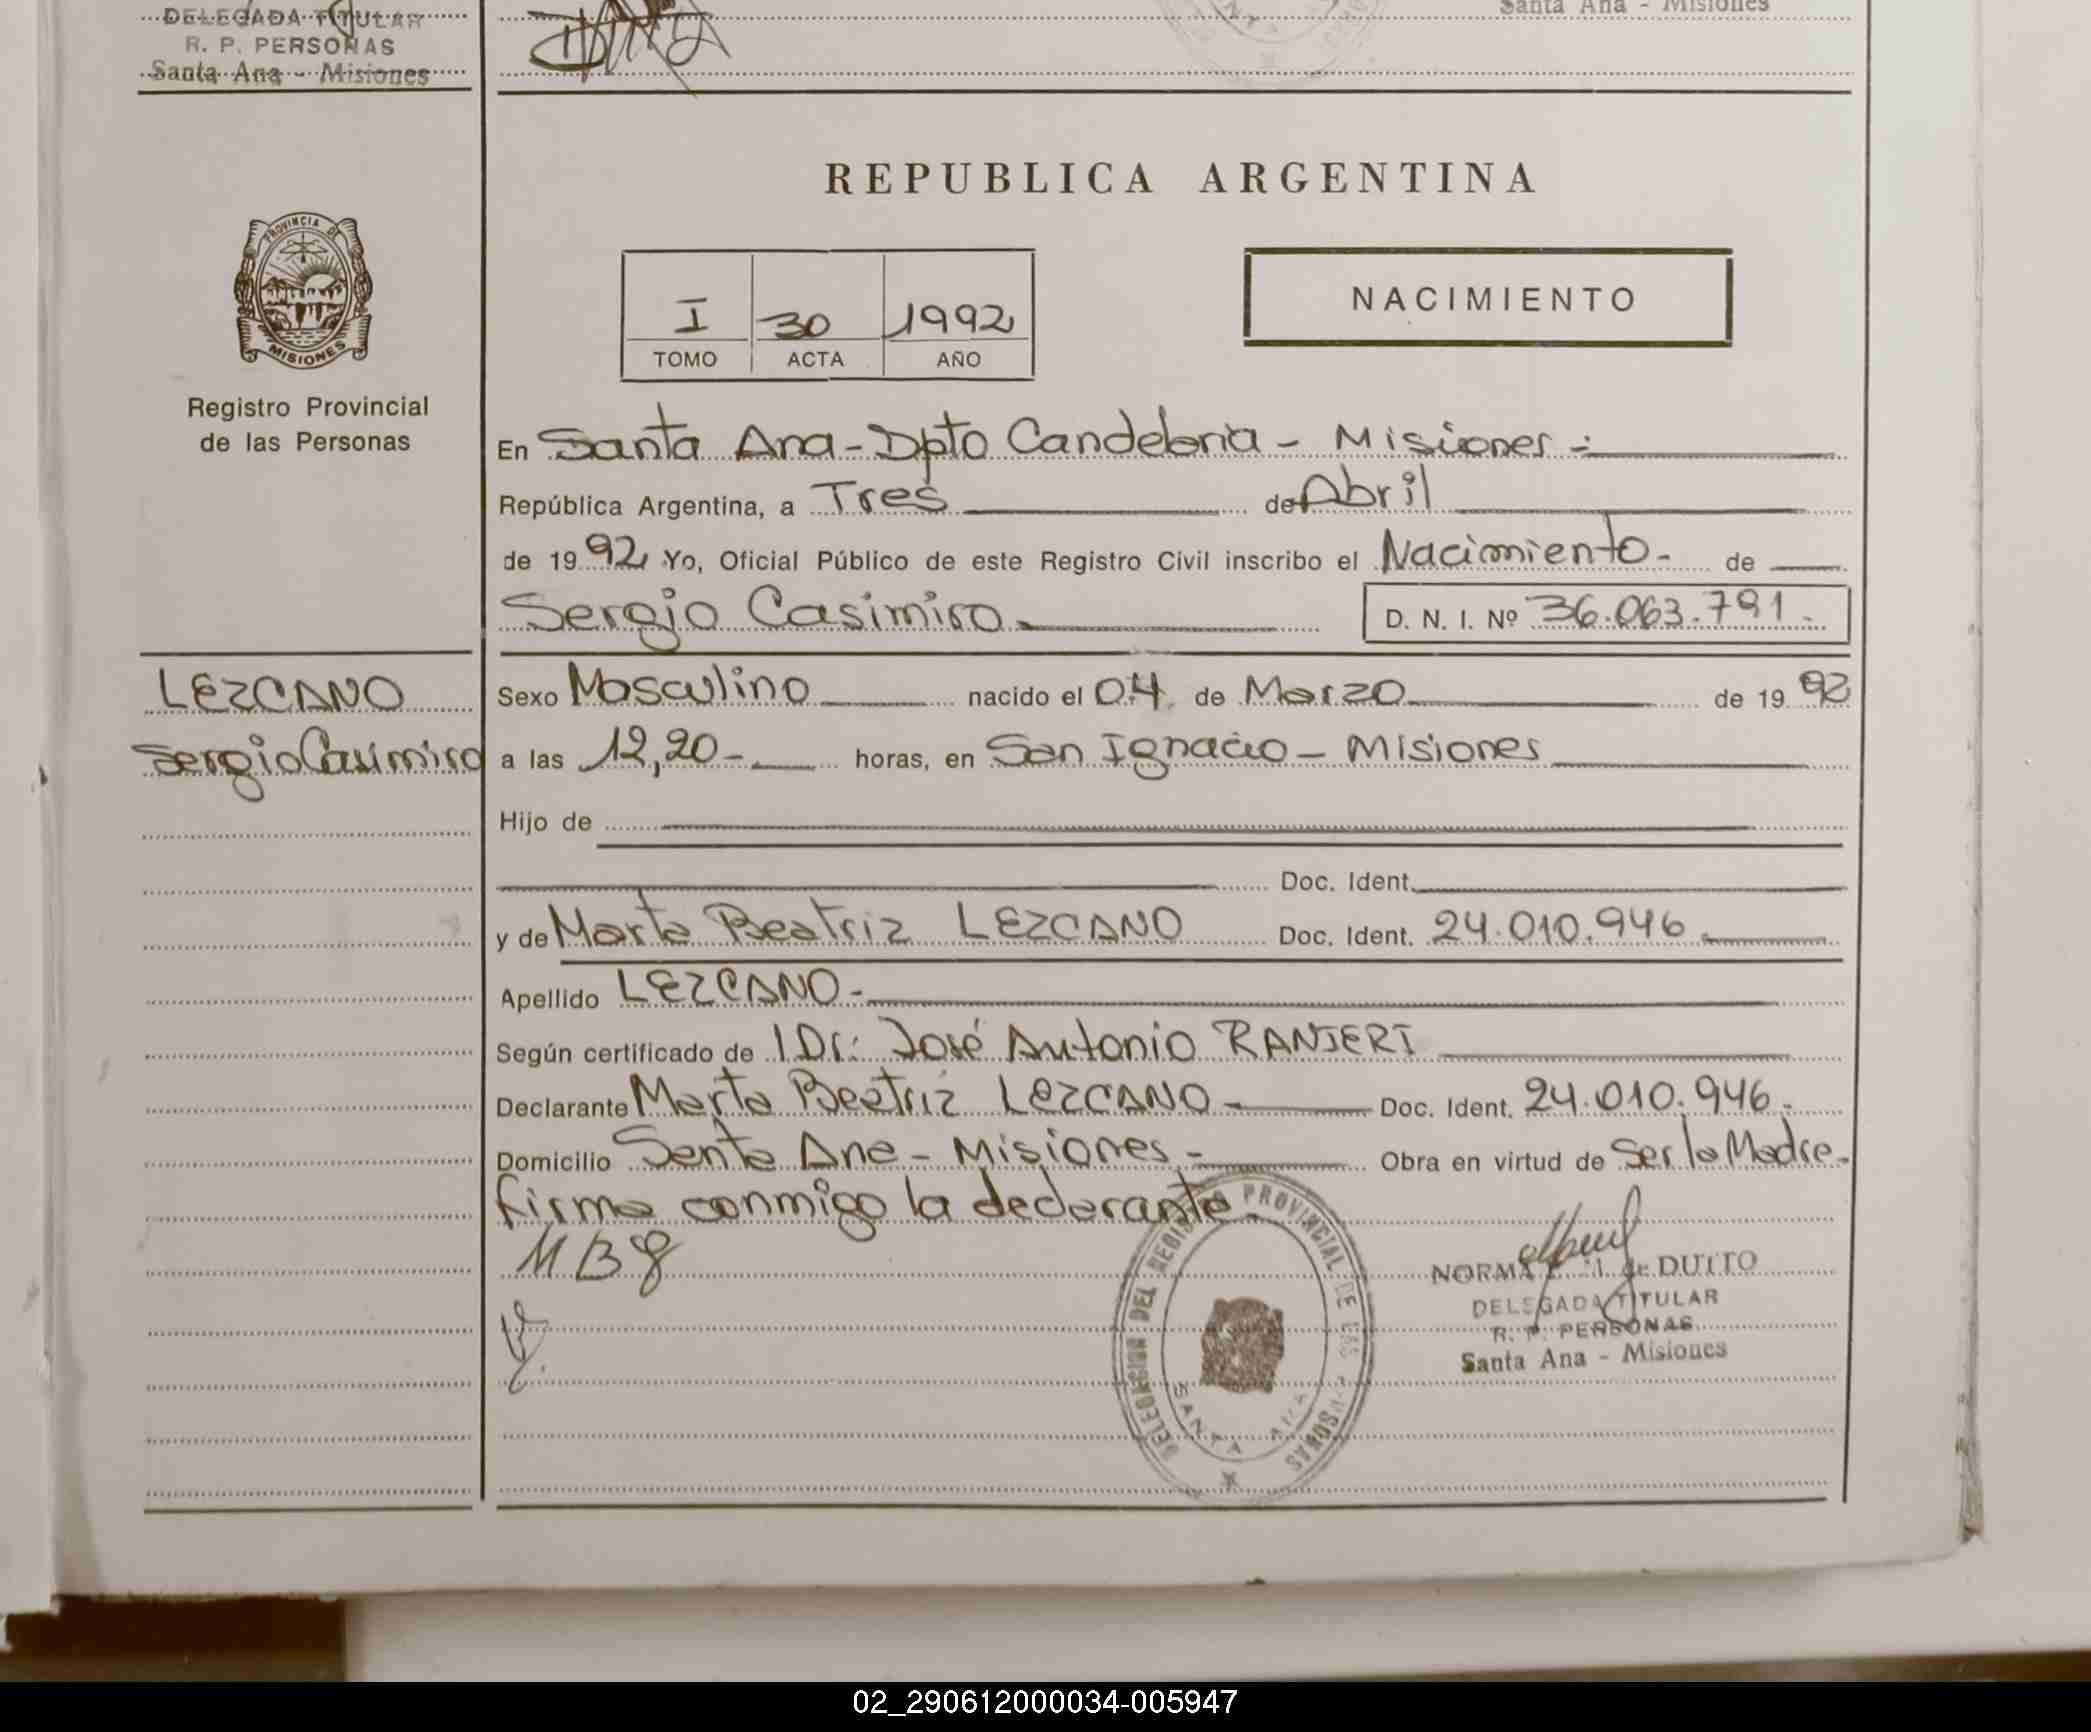 DELEGADA TITULAR
R. P. PERSONAS
Santa Ana - Misiones
Santa Ana - Misiones
PROVINCIA DE
MISIONES
Registro Provincial
de las Personas
REPUBLICA ARGENTINA
I 30 1992
TOMO ACTA AÑO
NACIMIENTO
En Santa Ana - Dpto Candelaria - Misiones -
República Argentina, a Tres de Abril
de 1992 Yo, Oficial Público de este Registro Civil inscribo el Nacimiento - de
Sergio Casimiro D. N. I. Nº 36.063.791.
LEZCANO
Sergio Casimiro
Sexo Masculino nacido el 04 de Marzo de 1992
a las 12,20 - horas, en San Ignacio - Misiones
Hijo de
Doc. Ident.
y de Marta Beatriz LEZCANO Doc. Ident. 24.010.946
Apellido LEZCANO -
Según certificado de Dr: José Antonio RANIERI
Declarante Marta Beatriz LEZCANO - Doc. Ident. 24.010.946.
Domicilio Santa Ana - Misiones - Obra en virtud de Ser la Madre -
firma conmigo la declarante
DELEGACION DEL REGISTRO PROVINCIAL DE LAS PERSONAS
SANTA ANA
NORMA de DUTTO
DELEGADA TITULAR
R. P. PERSONAS
Santa Ana - Misiones
02_290612000034-005947